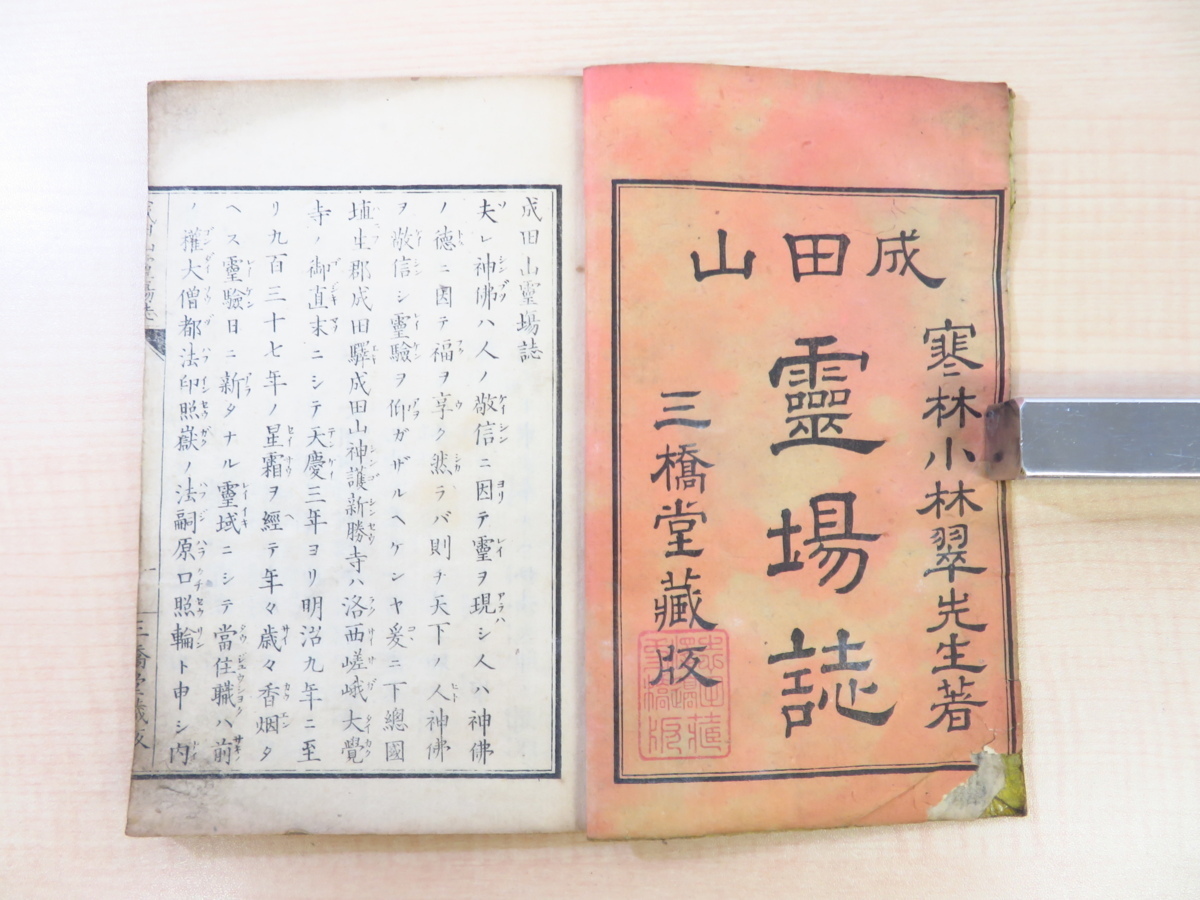 成田山
寒林小林翠先生著
靈場誌
三橋堂藏版
成田山靈塲誌
夫レ神佛ハ人ノ敬信ニ因テ靈ヲ現シ人ハ神佛
ノ德ニ因テ福ヲ享ク然ラバ則チ天下ノ人神佛
ヲ敬信シ靈驗ヲ仰ガザルヘケンヤ爰ニ下總國
埴生郡成田驛成田山神護新勝寺ハ洛西嵯峨大覺
寺ノ御直末ニシテ天慶三年ヨリ明治九年ニ至
リ九百三十七年ノ星霜ヲ經テ年々歳々香烟タ
ヘス靈驗日ニ新タナル靈域ニシテ當住職ハ前
ノ權大僧都法印照嶽ノ法嗣原口照輪ト申シ内
三橋堂藏版